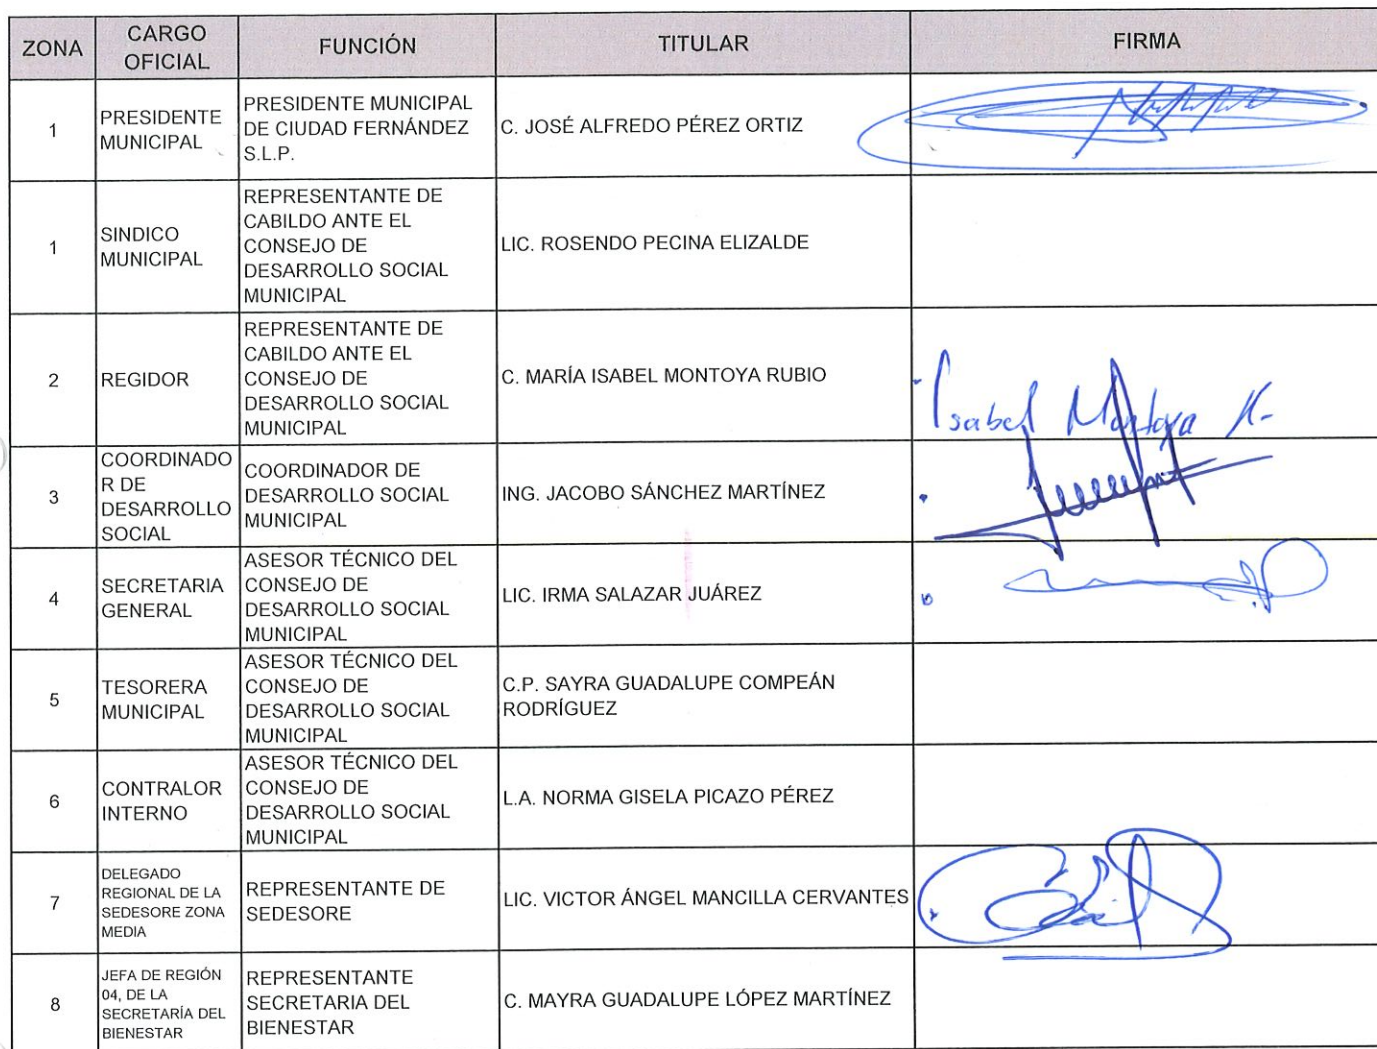 ZONA
CARGO
OFICIAL
FUNCIÓN
TITULAR
FIRMA
1
PRESIDENTE
MUNICIPAL
PRESIDENTE MUNICIPAL
DE CIUDAD FERNÁNDEZ
S.L.P.
C. JOSÉ ALFREDO PÉREZ ORTIZ
1
SINDICO
MUNICIPAL
REPRESENTANTE DE
CABILDO ANTE EL
CONSEJO DE
DESARROLLO SOCIAL
MUNICIPAL
LIC. ROSENDO PECINA ELIZALDE
2
REGIDOR
REPRESENTANTE DE
CABILDO ANTE EL
CONSEJO DE
DESARROLLO SOCIAL
MUNICIPAL
C. MARÍA ISABEL MONTOYA RUBIO
Isabel Montoya R-
3
COORDINADO
R DE
DESARROLLO
SOCIAL
COORDINADOR DE
DESARROLLO SOCIAL
MUNICIPAL
ING. JACOBO SÁNCHEZ MARTÍNEZ
4
SECRETARIA
GENERAL
ASESOR TÉCNICO DEL
CONSEJO DE
DESARROLLO SOCIAL
MUNICIPAL
LIC. IRMA SALAZAR JUÁREZ
5
TESORERA
MUNICIPAL
ASESOR TÉCNICO DEL
CONSEJO DE
DESARROLLO SOCIAL
MUNICIPAL
C.P. SAYRA GUADALUPE COMPEÁN
RODRÍGUEZ
6
CONTRALOR
INTERNO
ASESOR TÉCNICO DEL
CONSEJO DE
DESARROLLO SOCIAL
MUNICIPAL
L.A. NORMA GISELA PICAZO PÉREZ
7
DELEGADO
REGIONAL DE LA
SEDESORE ZONA
MEDIA
REPRESENTANTE DE
SEDESORE
LIC. VICTOR ÁNGEL MANCILLA CERVANTES
8
JEFA DE REGIÓN
04, DE LA
SECRETARÍA DEL
BIENESTAR
REPRESENTANTE
SECRETARIA DEL
BIENESTAR
C. MAYRA GUADALUPE LÓPEZ MARTÍNEZ